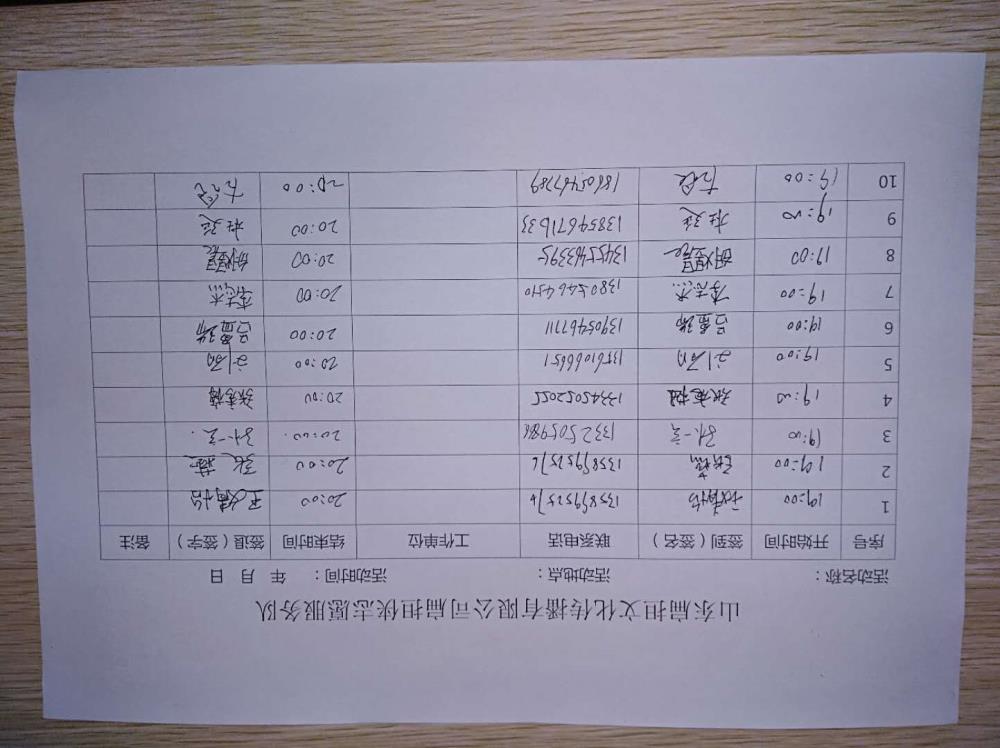 山东扁担文化传播有限公司扁担侠志愿服务队
活动名称： 活动地点： 活动时间： 年 月 日
序号 开始时间 签到（签名） 联系电话 工作单位 结束时间 签退（签字） 备注
1 19:00 13589952576 20:00
2 19:00 13589952576 20:00
3 19:00 孙一文 13325059786 20:00 孙一文
4 19:00 13345052055 20:00
5 19:00 刘丽 13561066651 20:00 刘丽
6 19:00 吕雪瑞 13905467711 20:00 吕雪瑞
7 19:00 李志杰 13805464510 20:00 李志杰
8 19:00 胡煜晨 13455463395 20:00 胡煜晨
9 19:00 杜延 13854671633 20:00 杜延
10 19:00 18605467789 20:00